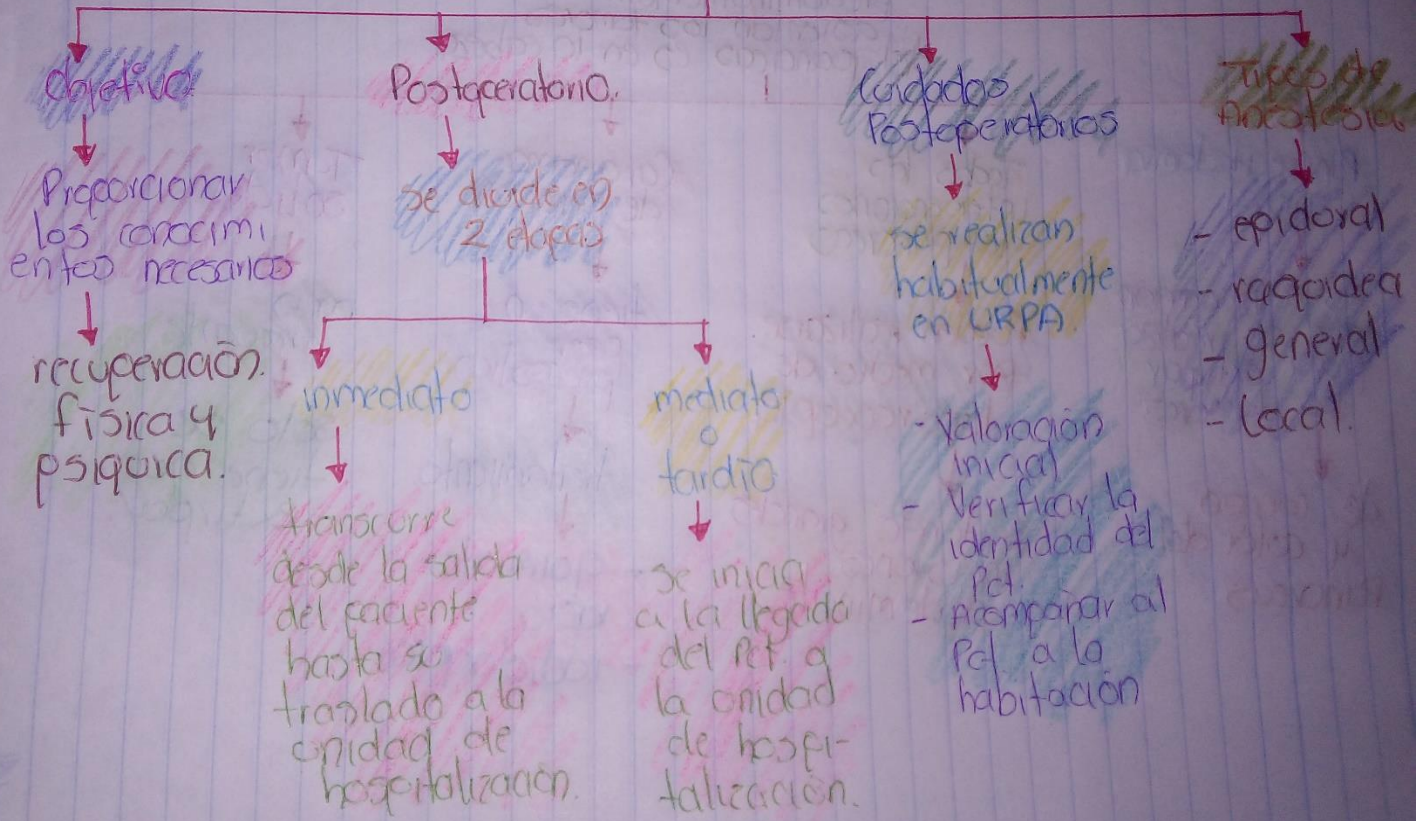 Objetivo
Proporcionar
los conocimi
entos necesarios
recuperación.
física y
psiquica.
Postoperatorio.
se divide en
2 etapas
inmediato
transcurre
desde la salida
del paciente
hasta su
traslado a la
unidad de
hospitalización.
mediato
o
tardío
se inicia
a la llegada
del Pct. a
la unidad
de hospi-
talización.
Cuidados
Postoperatorios
se realizan
habitualmente
en URPA
- Valoración
inicial
- Verificar la
identidad del
Pct.
- Acompañar al
Pct a la
habitación
Tipos de
Anestesias
- epidural
- raquidea
- general
- Local.